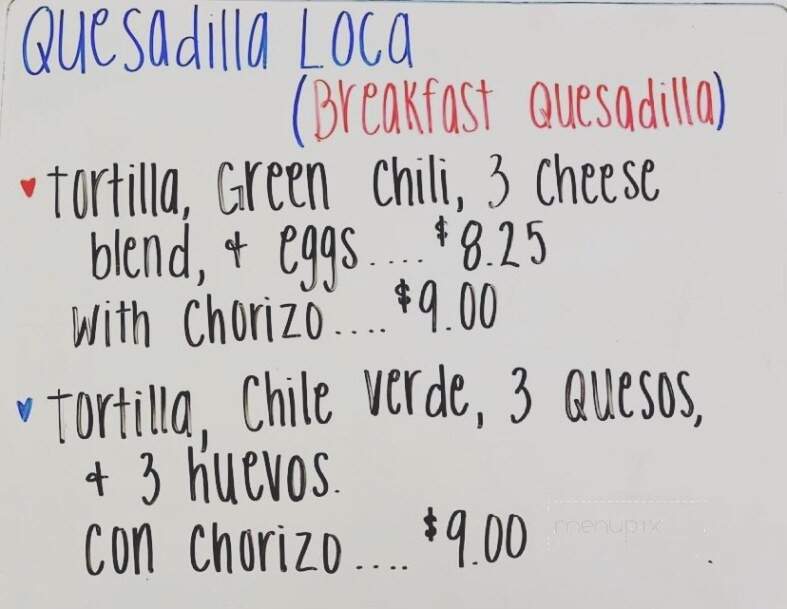 Quesadilla Loca
(Breakfast Quesadilla)
♥ tortilla, Green Chili, 3 Cheese
blend, & eggs.... $8.25
with Chorizo.... $9.00
♥ tortilla, Chile verde, 3 Quesos,
& 3 huevos.
con chorizo.... $9.00
menupix